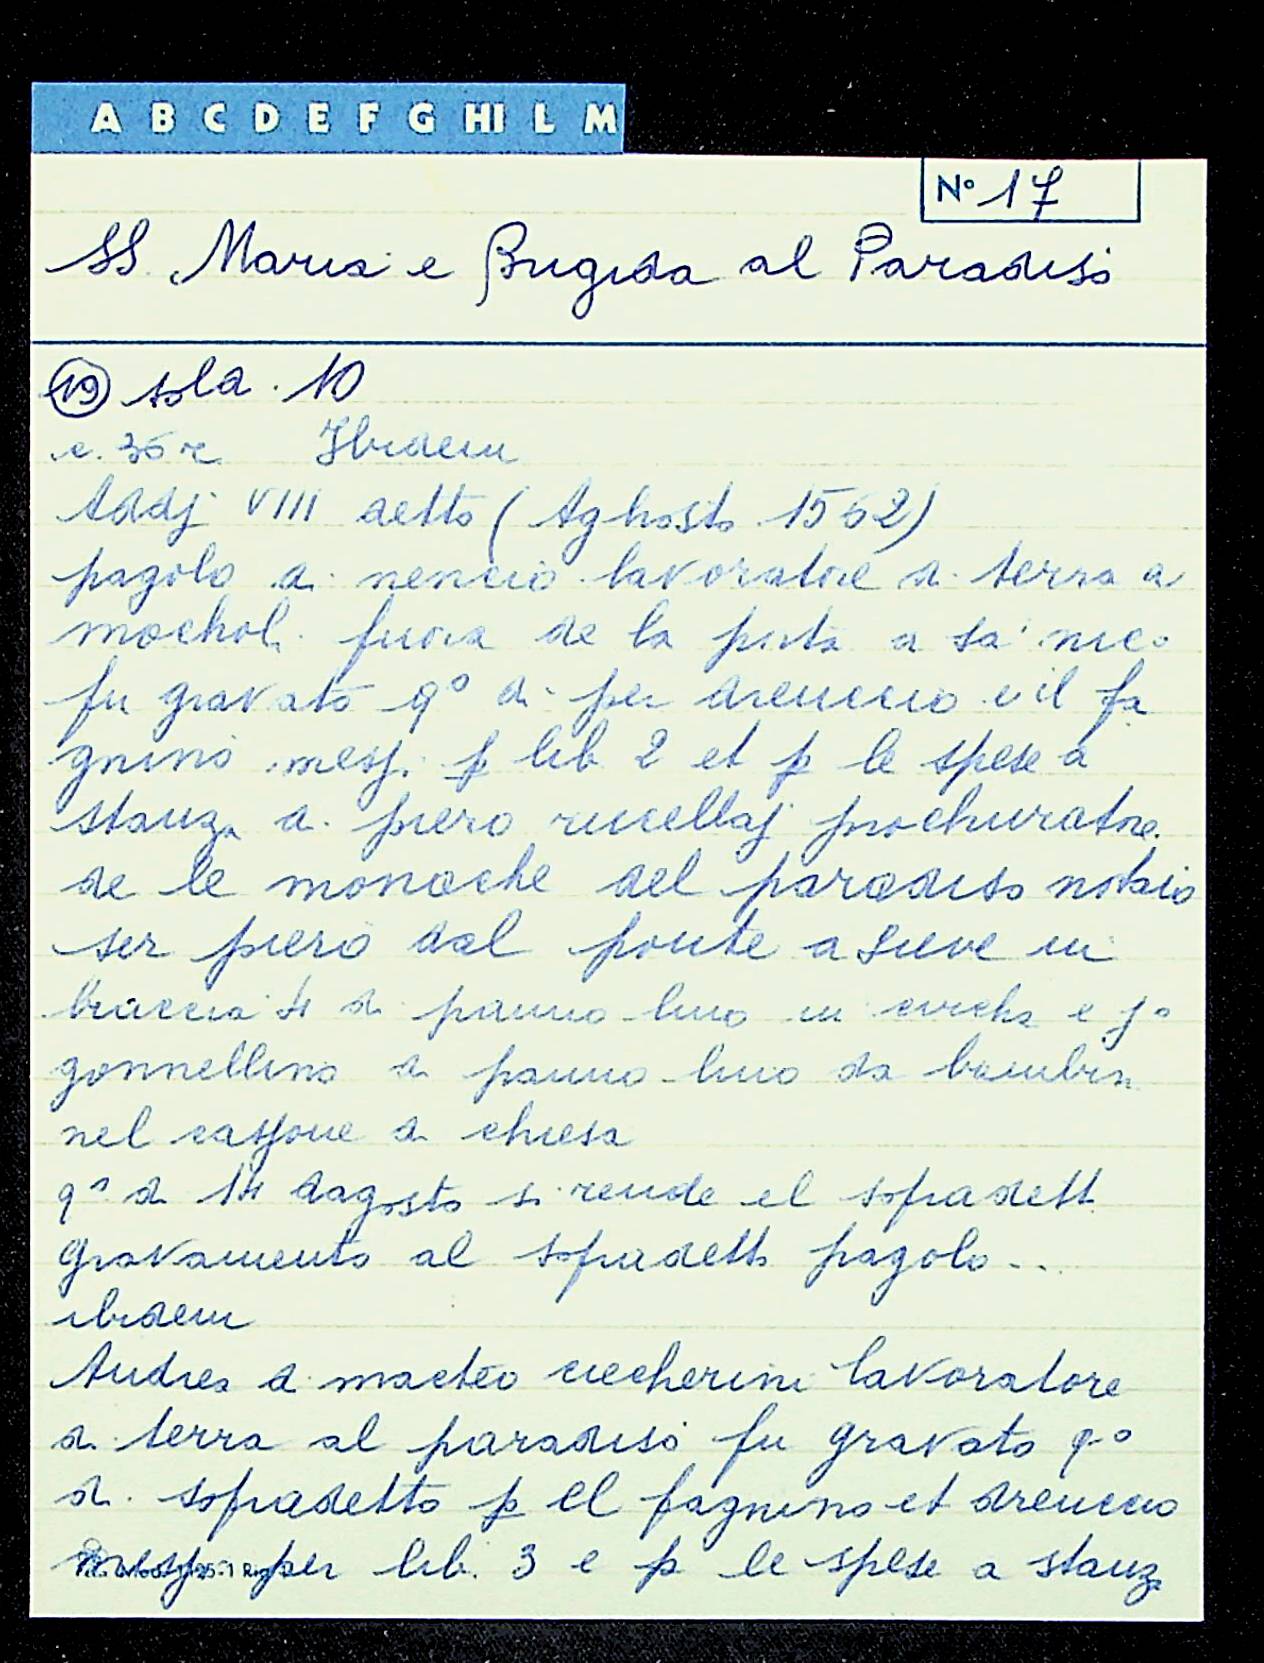 A B C D E F G HI L M
N° 17
SS. Maria e Brigida al Paradiso
19 sola. 10
c. 36 r. Ibidem
Addj VIII detto (Aghosto 1562)
pagolo di nencio lavoratore di terra a
mochol. fuora de la porta a sã nico
fu gravato qº di per drenccio e il fa
gnino messi p lib 2 et p le spese a
stanza di piero rucellaj prochuratore
de le monache del paradiso notaio
ser piero dal ponte a Sieve in
braccia 4 di panno lino in circha e jº
gonnellino di panno lino da bambin
nel cassone di chiesa
qº di 14 dagosto si rende el sopradett
gravamento al sopradetto pagolo...
ibidem
Andrea di macteo ciecherini lavoratore
di terra al paradiso fu gravato qº
di sopradetto p el fagnino et drenccio
messj per lib. 3 e p le spese a stanza